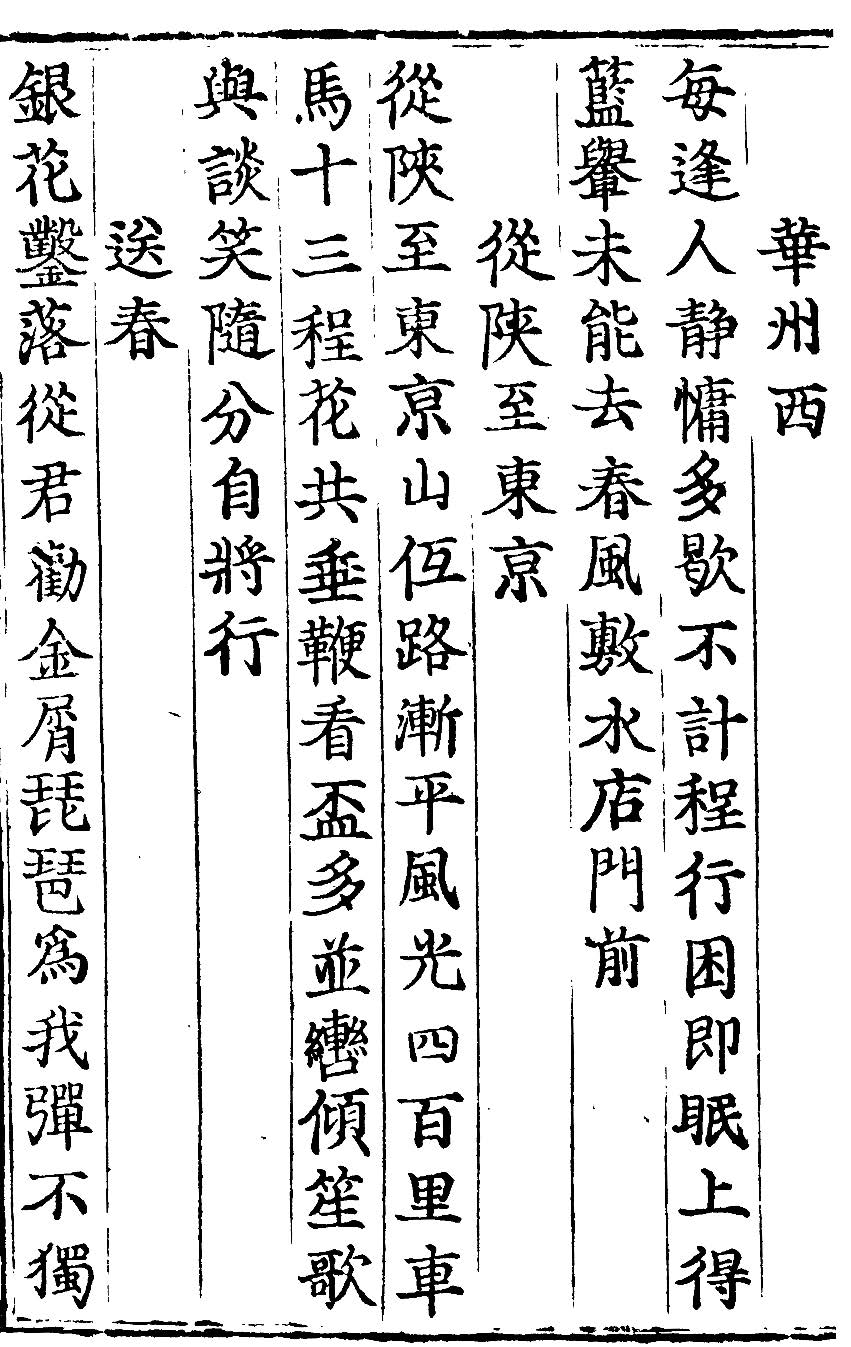 華州西
每逢人静慵多歇不計程行困即眠上得
藍轝未能去春風敷水店門前
從陜至東京
從陜至東京山低路漸平風光四百里車
馬十三程花共垂鞭看盃多並轡傾笙歌
與談笑隨分自將行
送春
銀花鑿落從君勸金屑琵琶為我彈不獨